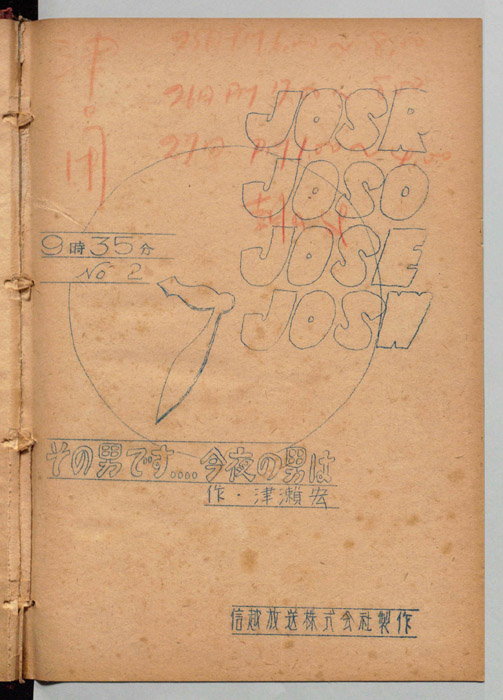 25日 PM 6.00 ~ 8.00
26日 PM
27日
JOSR
JOSO
JOSE
JOSW
9時35分
No 2
その男です....今夜の男は
作・津瀬宏
信越放送株式会社製作